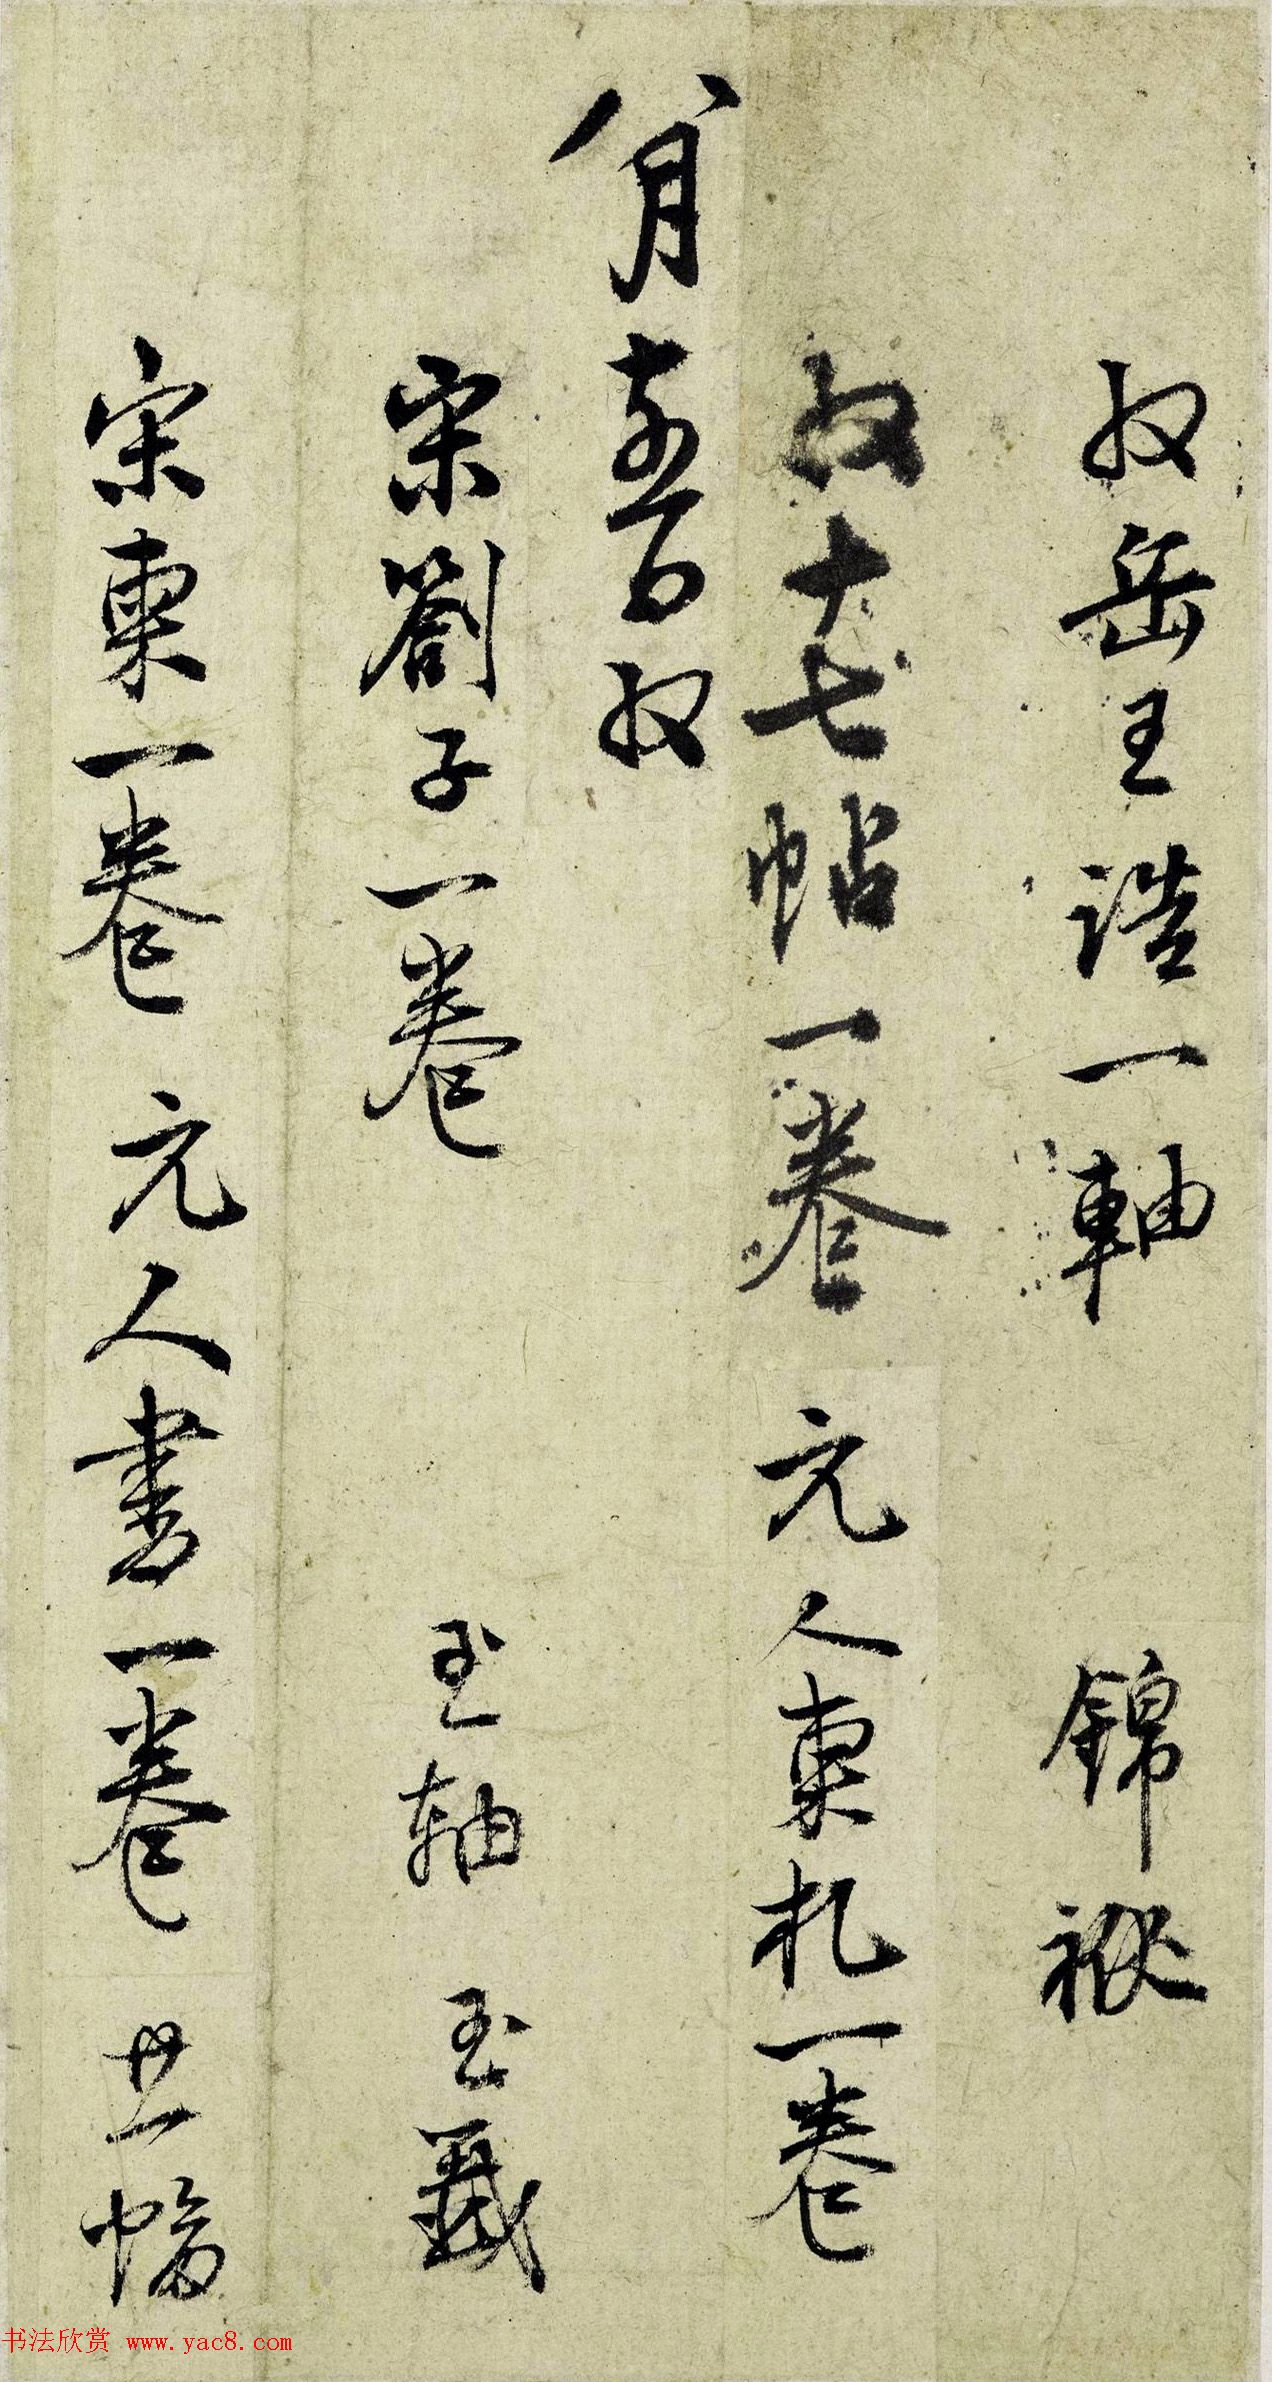 收岳王誥一軸 錦袱
收十七帖一卷 元人柬札一卷
八月 收
宋劄子一卷 玉軸 玉籤
宋柬一卷 元人書一卷 廿一幅
书法欣赏 www.yac8.com